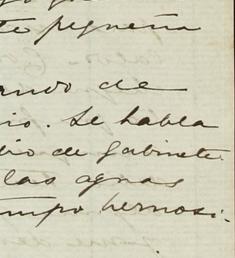 te pequeña
ando de
rio. Se habla
dio de Gabinete.
las aguas
empo hermosi-